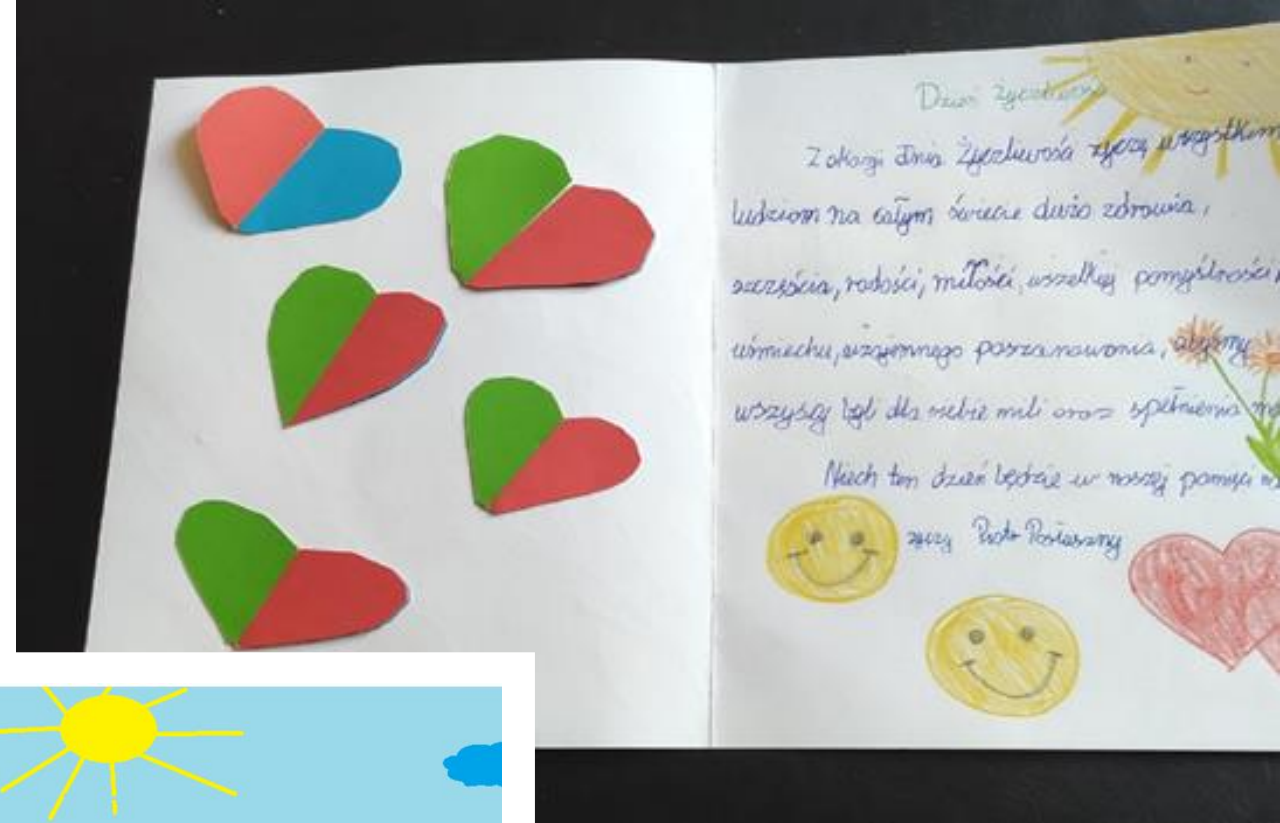 Dzień Życzliwości
Z okazji dnia Życzliwości życzę wszystkim
ludziom na całym świecie dużo zdrowia,
szczęścia, radości, miłości, wszelkiej pomyślności,
uśmiechu, wzajemnego poszanowania, abyśmy
wszyscy byli dla siebie mili oraz spełnienia
Niech ten dzień będzie w naszej pamięci
życzy Piotr